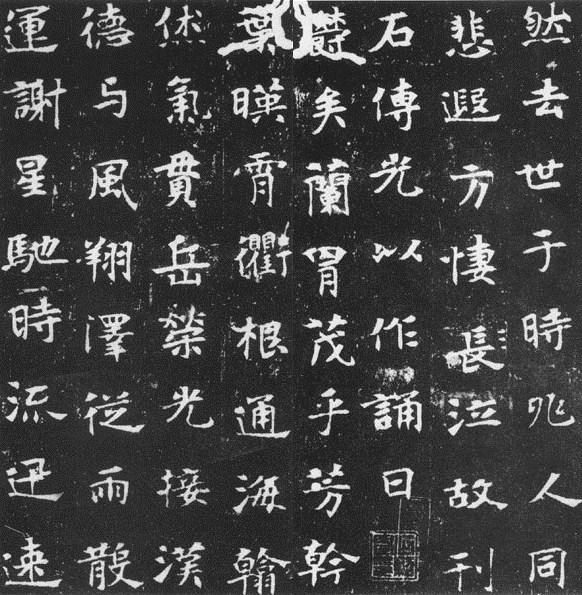 然去世于時兆人同
悲遐方悽長泣故刊
石傳光以作誦曰
欝矣蘭冑茂乎芳幹
葉暎霄衢根通海翰
烋氣貫岳榮光接漢
德与風翔澤從雨散
運謝星馳時流迅速